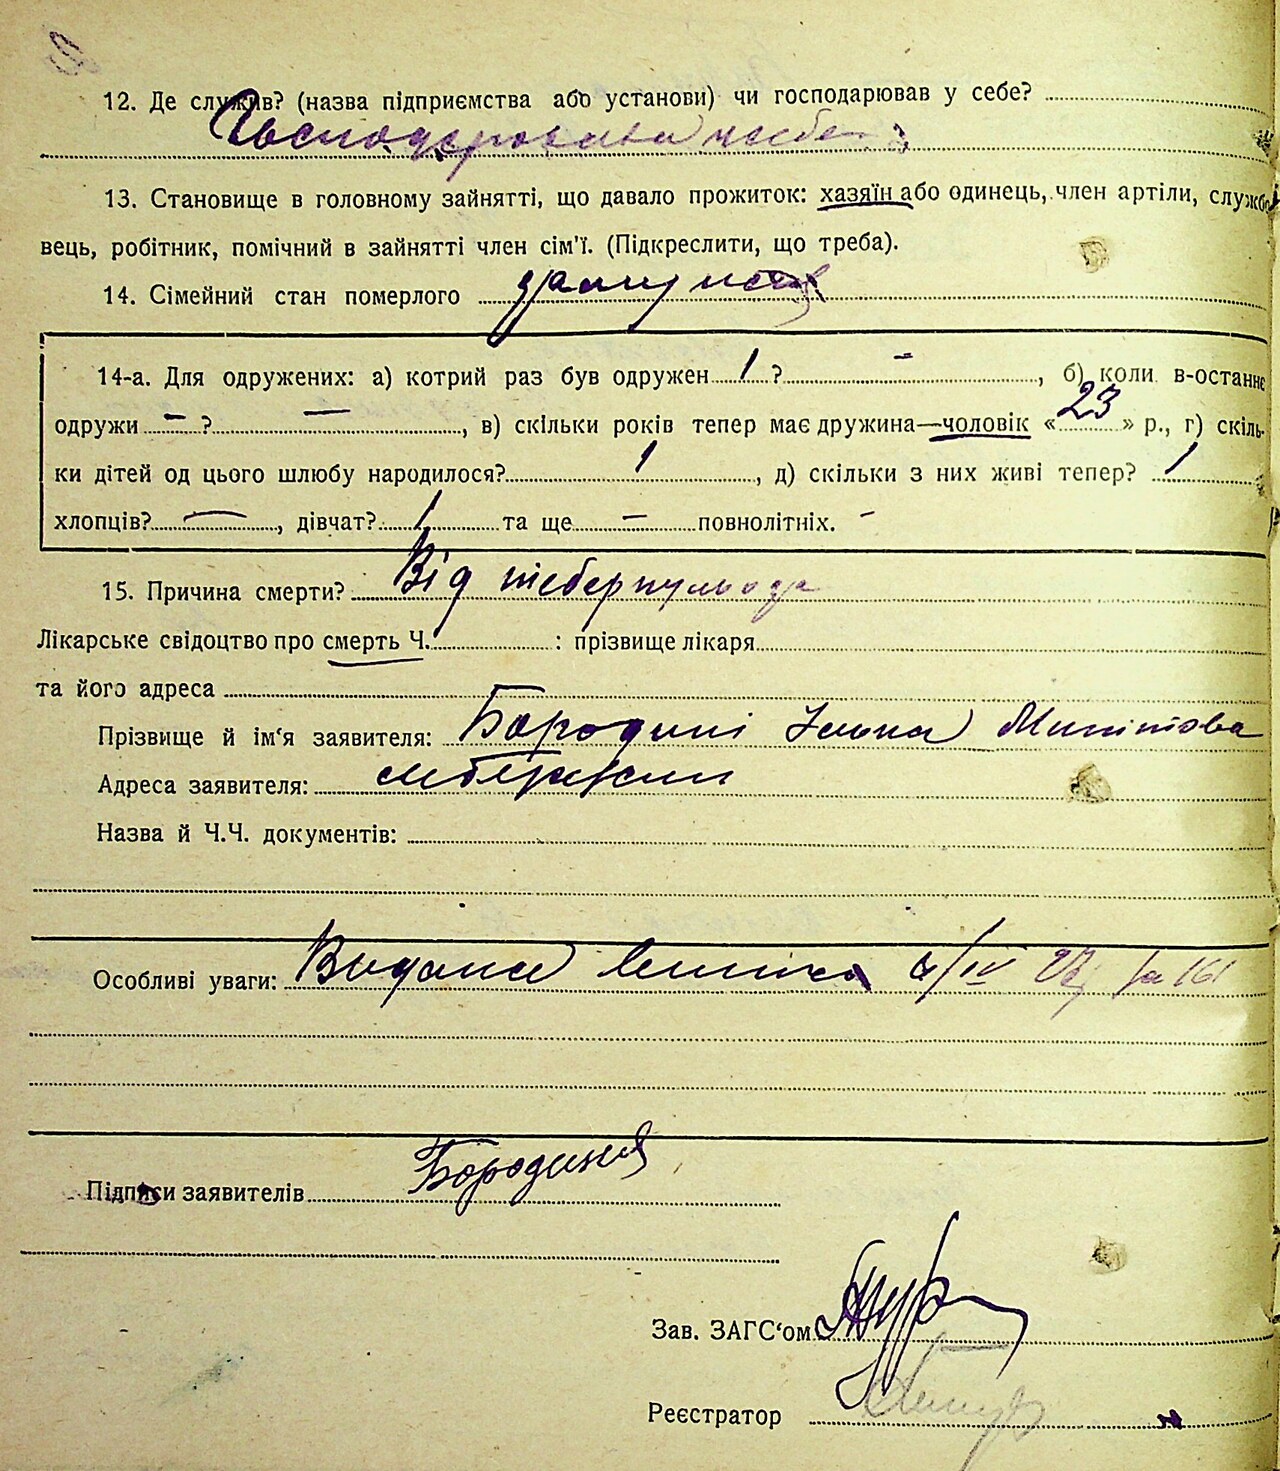 12. Де служив? (назва підприємства або установи) чи господарював у себе?
Господарювала у себе
13. Становище в головному зайнятті, що давало прожиток: хазяїн або одинець, член артілі, службо-
вець, робітник, помічний в зайнятті член сім'ї. (Підкреслити, що треба).
14. Сімейний стан померлого замужня
14-а. Для одружених: а) котрий раз був одружен 1 ? –, б) коли в-останнє
одружи – ? –, в) скільки років тепер має дружина—чоловік « 23 » р., г) скіль-
ки дітей од цього шлюбу народилося? 1, д) скільки з них живі тепер? 1
хлопців? –, дівчат? 1 та ще – повнолітніх. –
15. Причина смерти? Від теберкульоза
Лікарське свідоцтво про смерть Ч. : прізвище лікаря
та його адреса
Прізвище й ім'я заявителя: Бородині
Адреса заявителя:
Назва й Ч.Ч. документів:
Особливі уваги: Видана /IV 27 за 161
Підписи заявителів Бородиня
Зав. ЗАГС'ом
Реєстратор